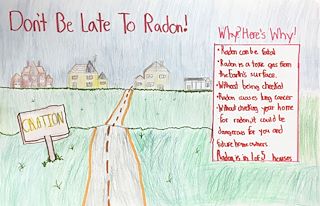 Don't Be Late To Radon!
Why? Here's Why!
• Radon can be fatal
• Radon is a toxic gas from
the Earth's surface.
• Without being checked
Radon causes lung cancer
• Without checking your home
for radon, it could be
dangerous for you and
future homeowners
Radon is in 1 of houses
CAUTION